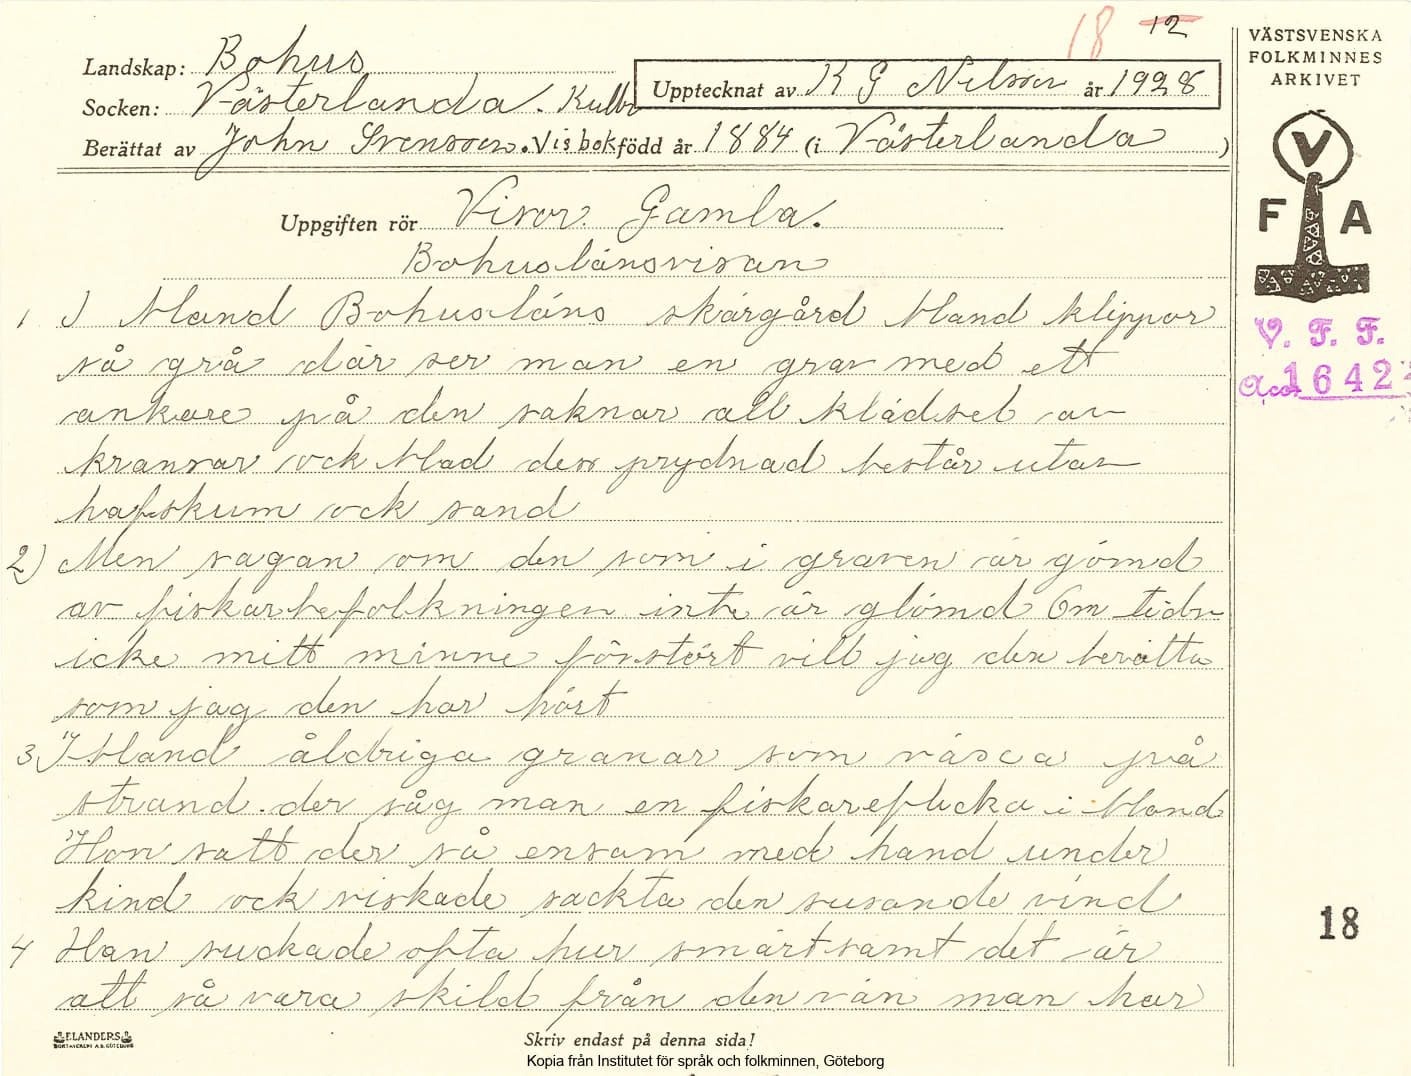 18 12
Landskap: Bohus
Socken: Västerlanda. Kulbr
Upptecknat av K G Nilsson år 1928
Berättat av John Svensson. Visbok född år 1884 (i Västerlanda )
Uppgiften rör Visor. Gamla.
Bohuslänsvisan
1 I bland Bohusläns skärgård bland klippor
så grå där ser man en grav med ett
ankare på den saknar all klädsel av
kransar ock blad dess prydnad består utav
hafskum ock sand
2) Men sagan om den som i graven är gömd
av fiskarbefolkningen inte är glömd Om tidn
icke mitt minne förstört vill jag den berätta
som jag den har hört
3) I bland åldriga granar som växa på
strand. der såg man en fiskareflicka i bland
Hon satt der så ensam med hand under
kind ock viskade sackta den susande vind
4 Han suckade ofta hur smärtsamt det är
att så vara skild från den vän man har
ELANDERS
BOKTRYCKERI A.B. GÖTEBORG
Skriv endast på denna sida!
Kopia från Institutet för språk och folkminnen, Göteborg
VÄSTSVENSKA
FOLKMINNES
ARKIVET
V
F A
V. F. F.
Acc. 1642
18